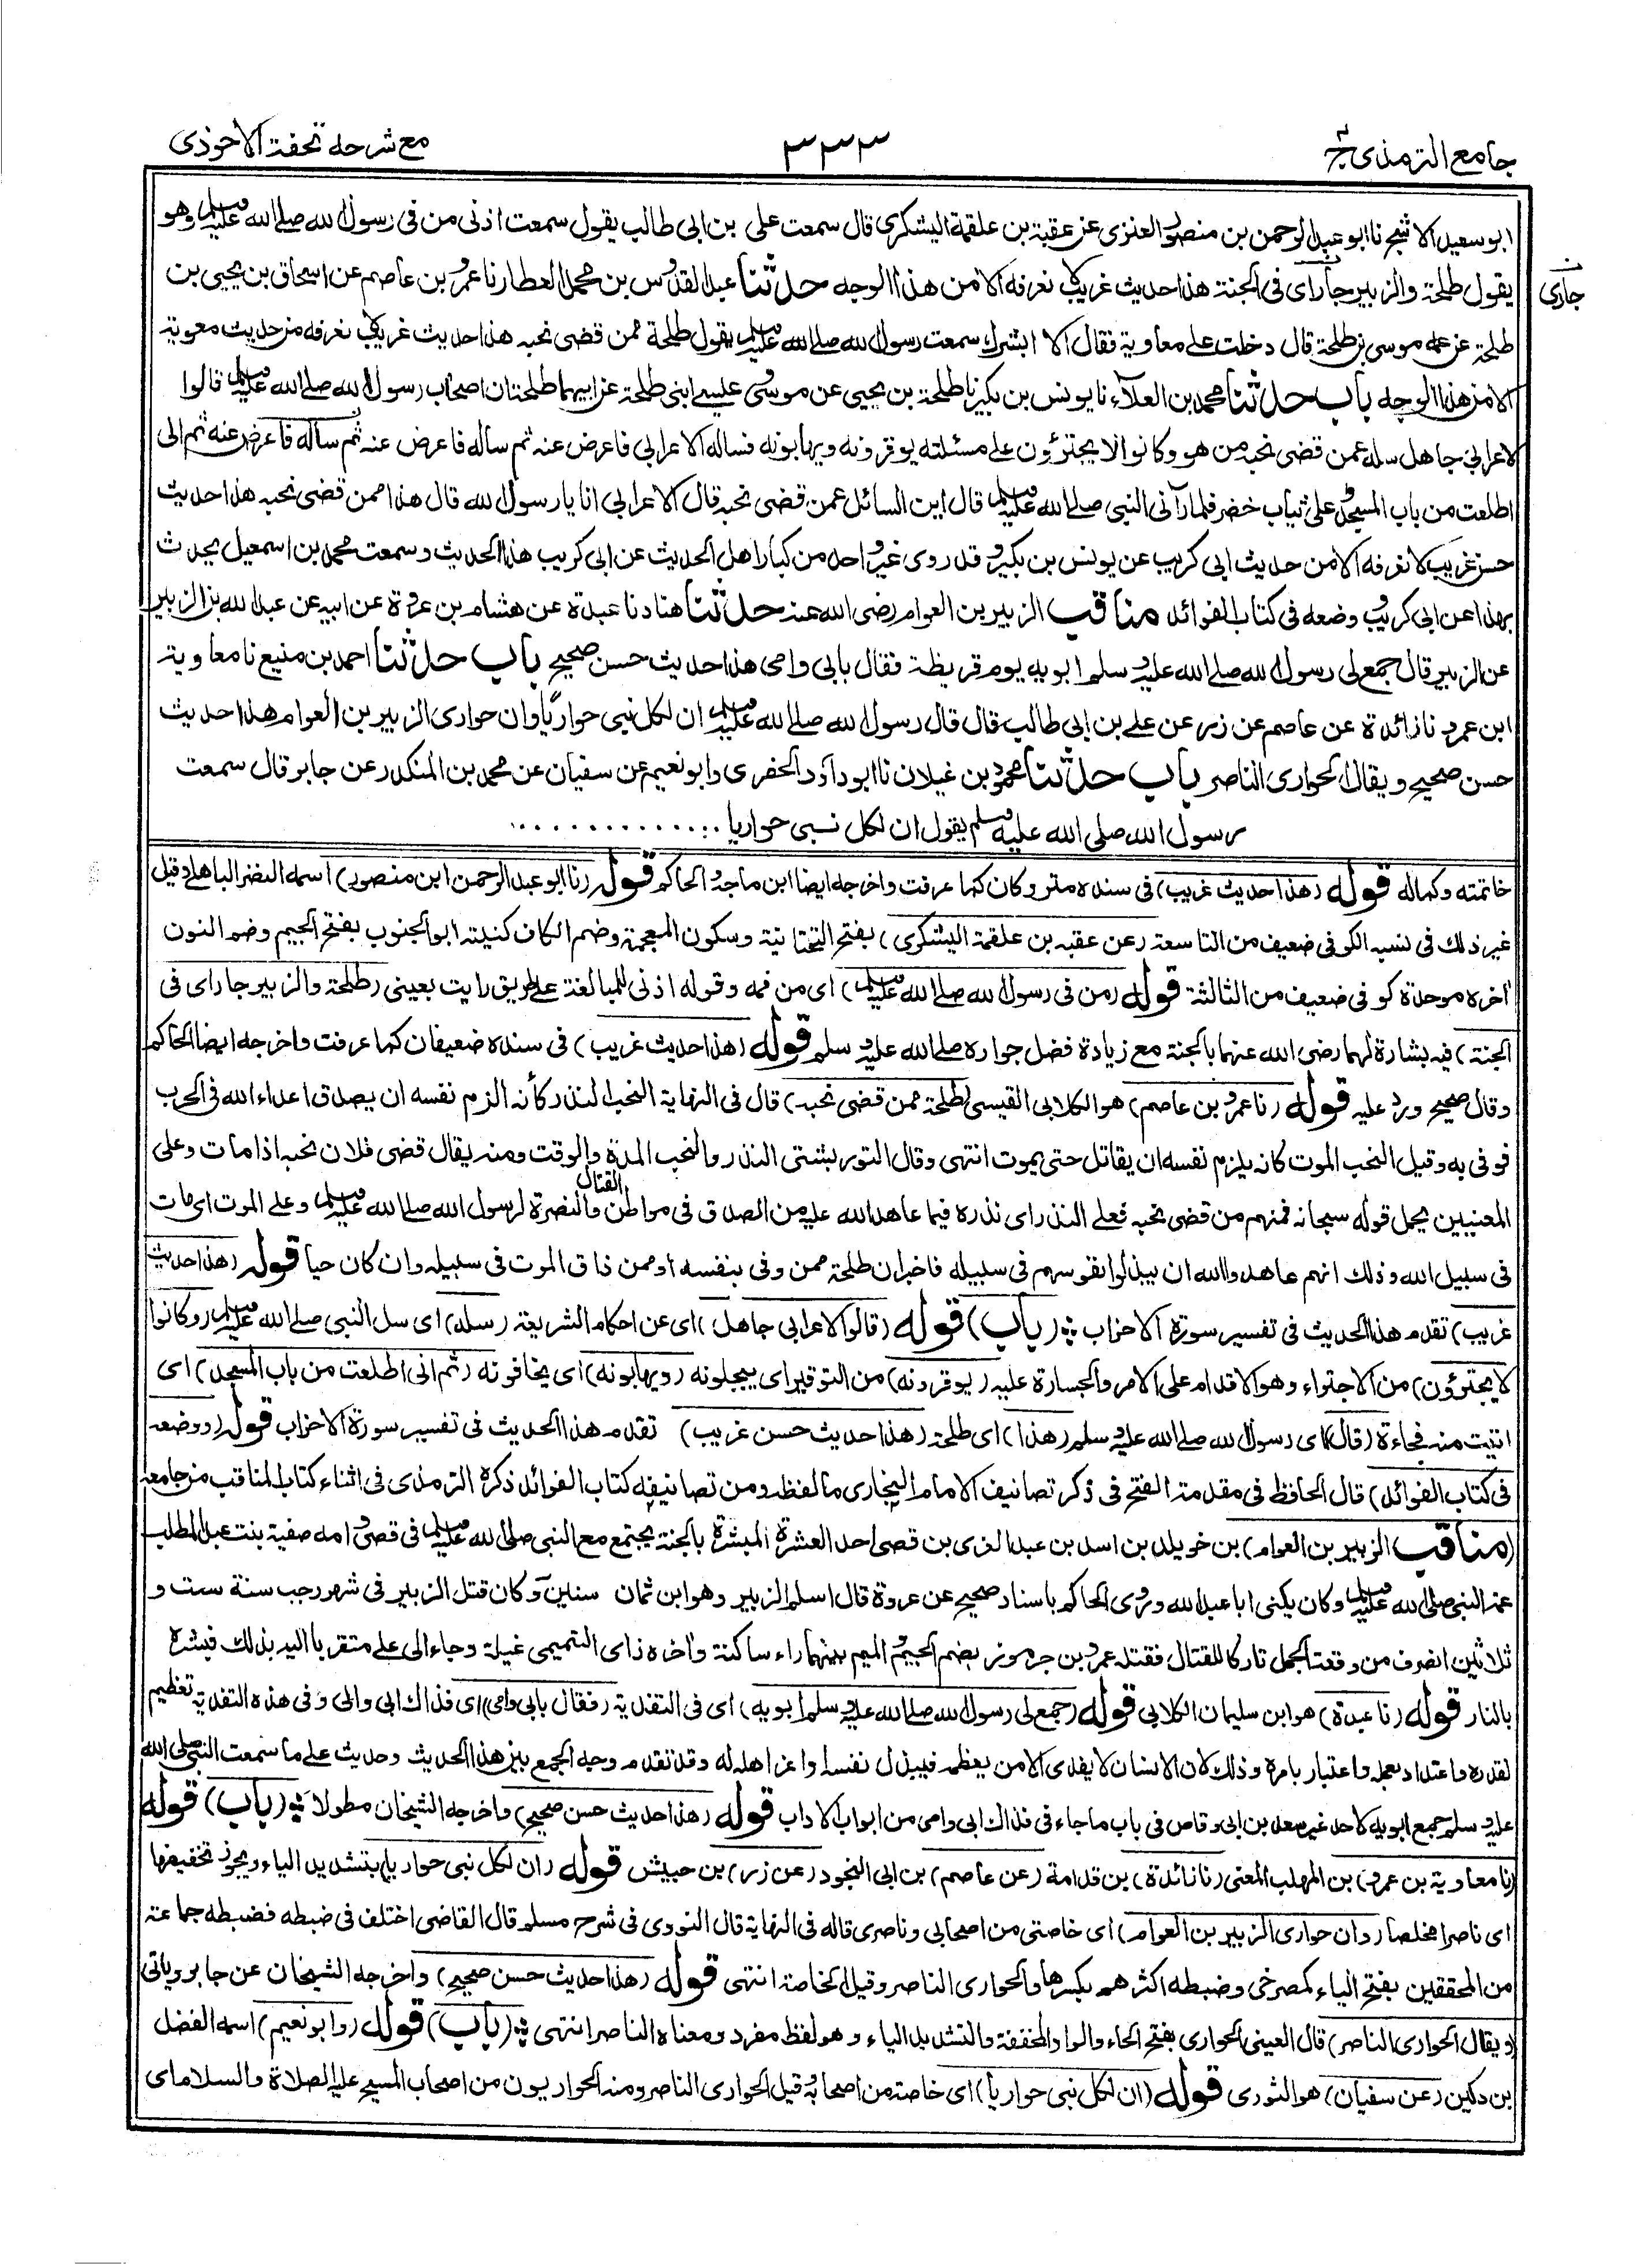 جامع الترمذی ج۴
۳۳۳
مع شرحه تحفة الاحوذی
ابو سعید الاشج نا ابو عبد الرحمن بن منصور العنزی عن عقبة بن علقمة الیشکری قال سمعت علی بن ابی طالب یقول سمعت اذنی من فی رسول الله صلی الله علیه وسلم وهو
یقول طلحة والزبیر جارای فی الجنة هذا حدیث غریب لا نعرفه الا من هذا الوجه حدثنا عبد القدوس بن محمد العطار نا عمرو بن عاصم عن اسحاق بن یحیی بن
جاری
طلحة عن عمه موسی بن طلحة قال دخلت علی معاویة فقال الا ابشرك سمعت رسول الله صلی الله علیه وسلم یقول طلحة ممن قضی نحبه هذا حدیث غریب لا نعرفه من حدیث معویة
الا من هذا الوجه باب حدثنا محمد بن العلاء نا یونس بن بکیر نا طلحة بن یحیی عن موسی وعیسی ابنی طلحة عن ابیهما طلحة ان اصحاب رسول الله صلی الله علیه وسلم قالوا
لاعرابی جاهل سله عمن قضی نحبه من هو وکانوا لا یجترؤن علی مسئلته یوقرونه ویهابونه فساله الاعرابی فاعرض عنه ثم ساله فاعرض عنه ثم ساله فاعرض عنه ثم انی
اطلعت من باب المسجد وعلی ثیاب خضر فلما رآنی النبی صلی الله علیه وسلم قال این السائل عمن قضی نحبه قال الاعرابی انا یا رسول الله قال هذا ممن قضی نحبه هذا حدیث
حسن غریب لا نعرفه الا من حدیث ابی کریب عن یونس بن بکیر وقد روی غیر واحد من کبار اهل الحدیث عن ابی کریب هذا الحدیث وسمعت محمد بن اسمعیل یحدث
بهذا عن ابی کریب ووضعه فی کتاب الفوائد مناقب الزبیر بن العوام رضی الله عنه حدثنا هناد نا عبدة عن هشام بن عروة عن ابیه عن عبد الله بن الزبیر
عن الزبیر قال جمع لی رسول الله صلی الله علیه وسلم ابویه یوم قریظة فقال بابی وامی هذا حدیث حسن صحیح باب حدثنا احمد بن منیع نا معاویة
ابن عمرو نا زائدة عن عاصم عن زر عن علی بن ابی طالب قال قال رسول الله صلی الله علیه وسلم ان لکل نبی حواریا وان حواری الزبیر بن العوام هذا حدیث
حسن صحیح ویقال الحواری الناصر باب حدثنا محمود بن غیلان نا ابو داؤد الحفری وابو نعیم عن سفیان عن محمد بن المنکدر عن جابر قال سمعت
رسول الله صلی الله علیه وسلم یقول ان لکل نبی حواریا ..............
خاتمته وکماله قوله (هذا حدیث غریب) فی سنده متروکان کما عرفت واخرجه ایضا ابن ماجة والحاکم قوله (نا ابو عبد الرحمن ابن منصور) اسمه النضر الباهلی وقیل
غیر ذلك فی نسبه الکوفی ضعیف من التاسعة (عن عقبه بن علقمة الیشکری) بفتح التحتانیة وسکون المعجمة وضم الکاف کنیته ابو الجنوب بفتح الجیم وضم النون
آخره موحدة کوفی ضعیف من الثالثة قوله (من فی رسول الله صلی الله علیه وسلم) ای من فمه وقوله اذنی للمبالغة علی طریق رایت بعینی (طلحة والزبیر جارای فی
الجنة) فیه بشارة لهما رضی الله عنهما بالجنة مع زیادة فضل جواره صلی الله علیه وسلم قوله (هذا حدیث غریب) فی سنده ضعیفان کما عرفت واخرجه ایضا الحاکم
وقال صحیح ورد علیه قوله (نا عمرو بن عاصم) هو الکلابی القیسی (طلحة ممن قضی نحبه) قال فی النهایة النحب النذر کأنه الزم نفسه ان یصدق اعداء الله فی الحرب
فوفی به وقیل النحب الموت کانه یلزم نفسه ان یقاتل حتی یموت انتهی وقال التوربشتی النذر والنحب المدة والوقت ومنه یقال قضی فلان نحبه اذا مات وعلی
المعنیین یحمل قوله سبحانه فمنهم من قضی نحبه فعلی النذر ای نذره فیما عاهد الله علیه من الصدق فی مواطن القتال والنصرة لرسول الله صلی الله علیه وسلم وعلی الموت ای مات
فی سبیل الله وذلك انهم عاهدوا الله ان یبذلوا نفوسهم فی سبیله فاخبر ان طلحة ممن وفی بنفسه او ممن ذاق الموت فی سبیله وان کان حیا قوله (هذا حدیث
غریب) تقدم هذا الحدیث فی تفسیر سورة الاحزاب (باب) قوله (قالوا لاعرابی جاهل) ای عن احکام الشریعة (سله) ای سل النبی صلی الله علیه وسلم (وکانوا
لا یجترؤن) من الاجتراء وهو الاقدام علی الامر والجسارة علیه (یوقرونه) من التوقیر ای یبجلونه (ویهابونه) ای یخافونه (ثم انی اطلعت من باب المسجد) ای
اتیت منه فجاءة (قال) ای رسول الله صلی الله علیه وسلم (هذا) ای طلحة (هذا حدیث حسن غریب) تقدم هذا الحدیث فی تفسیر سورة الاحزاب قوله (ووضعه
فی کتاب الفوائد) قال الحافظ فی مقدمة الفتح فی ذکر تصانیف الامام البخاری ما لفظه ومن تصانیفه کتاب الفوائد ذکره الترمذی فی اثناء کتاب المناقب من جامعه
(مناقب الزبیر بن العوام) بن خویلد بن اسد بن عبد العزی بن قصی احد العشرة المبشرة بالجنة یجتمع مع النبی صلی الله علیه وسلم فی قصی وامه صفیة بنت عبد المطلب
عمة النبی صلی الله علیه وسلم وکان یکنی ابا عبد الله وروی الحاکم باسناد صحیح عن عروة قال اسلم الزبیر وهو ابن ثمان سنین وکان قتل الزبیر فی شهر رجب سنة ست و
ثلاثین انصرف من وقعة الجمل تارکا للقتال فقتله عمرو بن جرموز بضم الجیم والمیم بینهما راء ساکنة وآخره زای التمیمی غیلة وجاء الی علی متقربا الیه بذلك فبشره
بالنار قوله (نا عبدة) هو ابن سلیمان الکلابی قوله (جمع لی رسول الله صلی الله علیه وسلم ابویه) ای فی التفدیة (فقال بابی وامی) ای فداك ابی وامی وفی هذه التفدیة تعظیم
لقدره واعتداد بعمله واعتبار بامره وذلك لان الانسان لا یفدی الا من یعظمه فیبذل نفسه او اعز اهله له وقد تقدم وجه الجمع بین هذا الحدیث وحدیث علی ما سمعت النبی صلی الله
علیه وسلم جمع ابویه لاحد غیر سعد بن ابی وقاص فی باب ما جاء فی فداك ابی وامی من ابواب الاداب قوله (هذا حدیث حسن صحیح) واخرجه الشیخان مطولا (باب) قوله
(نا معاویة بن عمرو) بن المهلب المعنی (نا زائدة) بن قدامة (عن عاصم) بن ابی النجود (عن زر) بن حبیش قوله (ان لکل نبی حواریا) بتشدید الیاء ویجوز تخفیفها
ای ناصرا مخلصا (وان حواری الزبیر بن العوام) ای خاصتی من اصحابی وناصری قاله فی النهایة قال النووی فی شرح مسلم قال القاضی اختلف فی ضبطه فضبطه جماعة
من المحققین بفتح الیاء کمصرخی وضبطه اکثرهم بکسرها والحواری الناصر وقیل الخاصة انتهی قوله (هذا حدیث حسن صحیح) واخرجه الشیخان عن جابر ویاتی
(ویقال الحواری الناصر) قال العینی الحواری بفتح الحاء والواو المخففة والتشدید الیاء وهو لفظ مفرد ومعناه الناصر انتهی (باب) قوله (وابو نعیم) اسمه الفضل
بن دکین (عن سفیان) هو الثوری قوله (ان لکل نبی حواریا) ای خاصة من اصحابه وقیل الحواری الناصر ومنه الحواریون من اصحاب المسیح علیه الصلاة والسلام ای